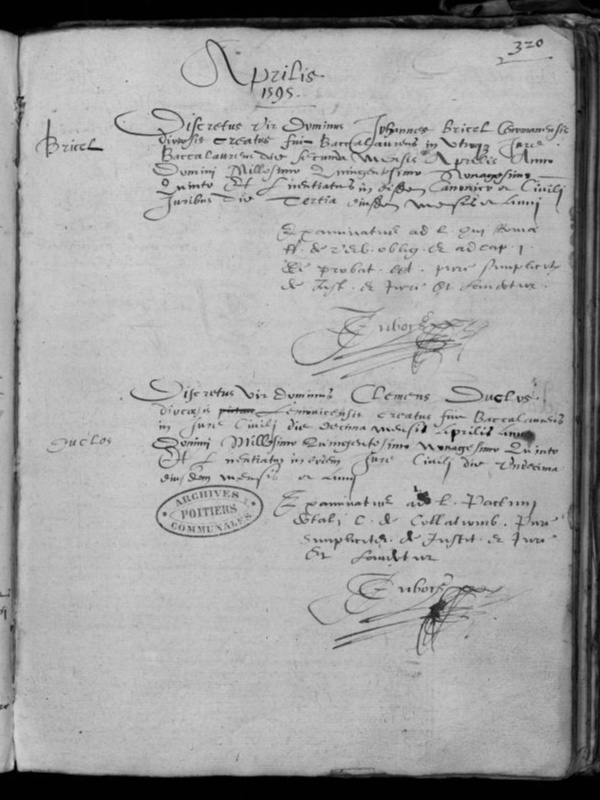 320
Aprilis
1595.
Bricel
Discretus vir Dominus Johannes Bricel Cenomanensis
diocesis creatus fuit Baccalaureus in utroq; Jure
Baccalaureus die secunda mensis Aprilis Anno
Domini Millesimo Quingentesimo Nonagesimo
Quinto Et Licentiatus in eisdem Canonico et Civili
Juribus die Tertia eiusdem mensis et Anni
Examinatus ad l. qui Romæ
ff. de verb. oblig. et ad cap. 1.
de probat. ext. pure simplicit
de Just. et Jure Et Laudetur.
Discretus Vir dominus Clemens Duclos
diocesis Lemovicensis creatus fuit Baccalaureus
in Jure Civili die decima mensis Aprilis Anno
Duclos
Domini Millesimo Quingentesimo Nonagesimo Quinto
Et Licentiatus in eodem Jure Civili die Undecima
eiusdem mensis et Anni
ARCHIVES
POITIERS
COMMUNALES
Examinatus ad l. Pactum
dotali C. de Collationib. Pure
simpliciter de Justit. et Jure
Et Laudetur